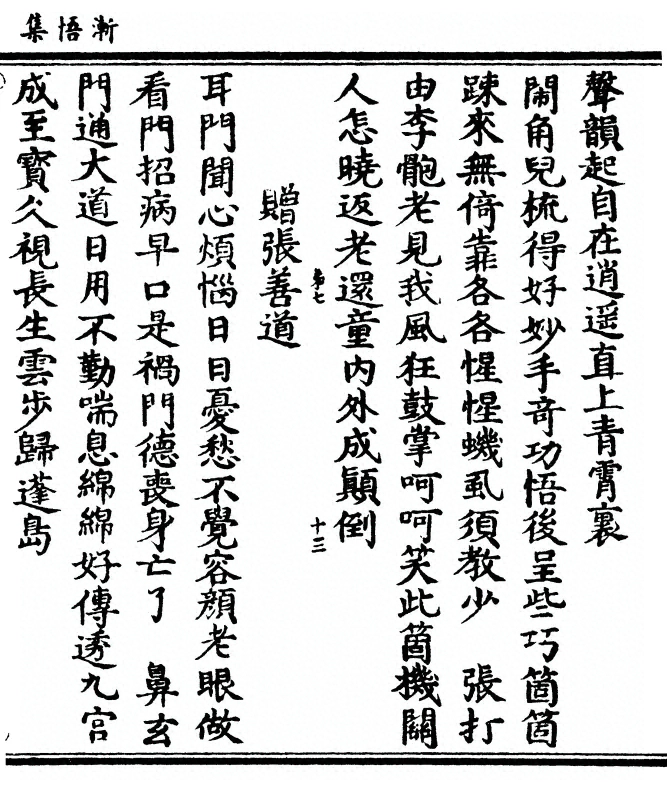 漸悟集
聲韻起自在逍遥直上青霄裏
鬧角兒梳得好妙手竒功悟後呈些巧箇箇
踈來無倚靠各各惺惺蟣虱須教少　張打
由李骲老見我風狂鼓掌呵呵笑此箇機關
人怎曉返老還童内外成顛倒
弟七
十三
贈張善道
耳門聞心煩惱日日憂愁不覺容顔老眼做
看門招病早口是禍門德喪身亡了　鼻玄
門通大道日用不勤喘息綿綿好傳透九宫
成至寳久視長生雲步歸蓬島